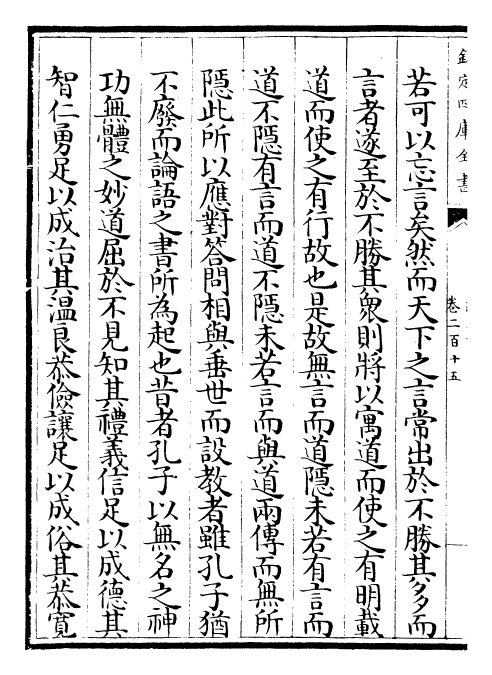 欽定四庫全書
卷二百十五
若可以忘言矣然而天下之言常出於不勝其多而
言者遂至於不勝其衆則將以寓道而使之有明載
道而使之有行故也是故無言而道隱未若有言而
道不隱有言而道不隱未若言而與道兩傳而無所
隱此所以應對答問相與垂世而設教者雖孔子猶
不廢而論語之書所為起也昔者孔子以無名之神
功無體之妙道屈於不見知其禮義信足以成德其
智仁勇足以成治其温良恭儉讓足以成俗其恭寛